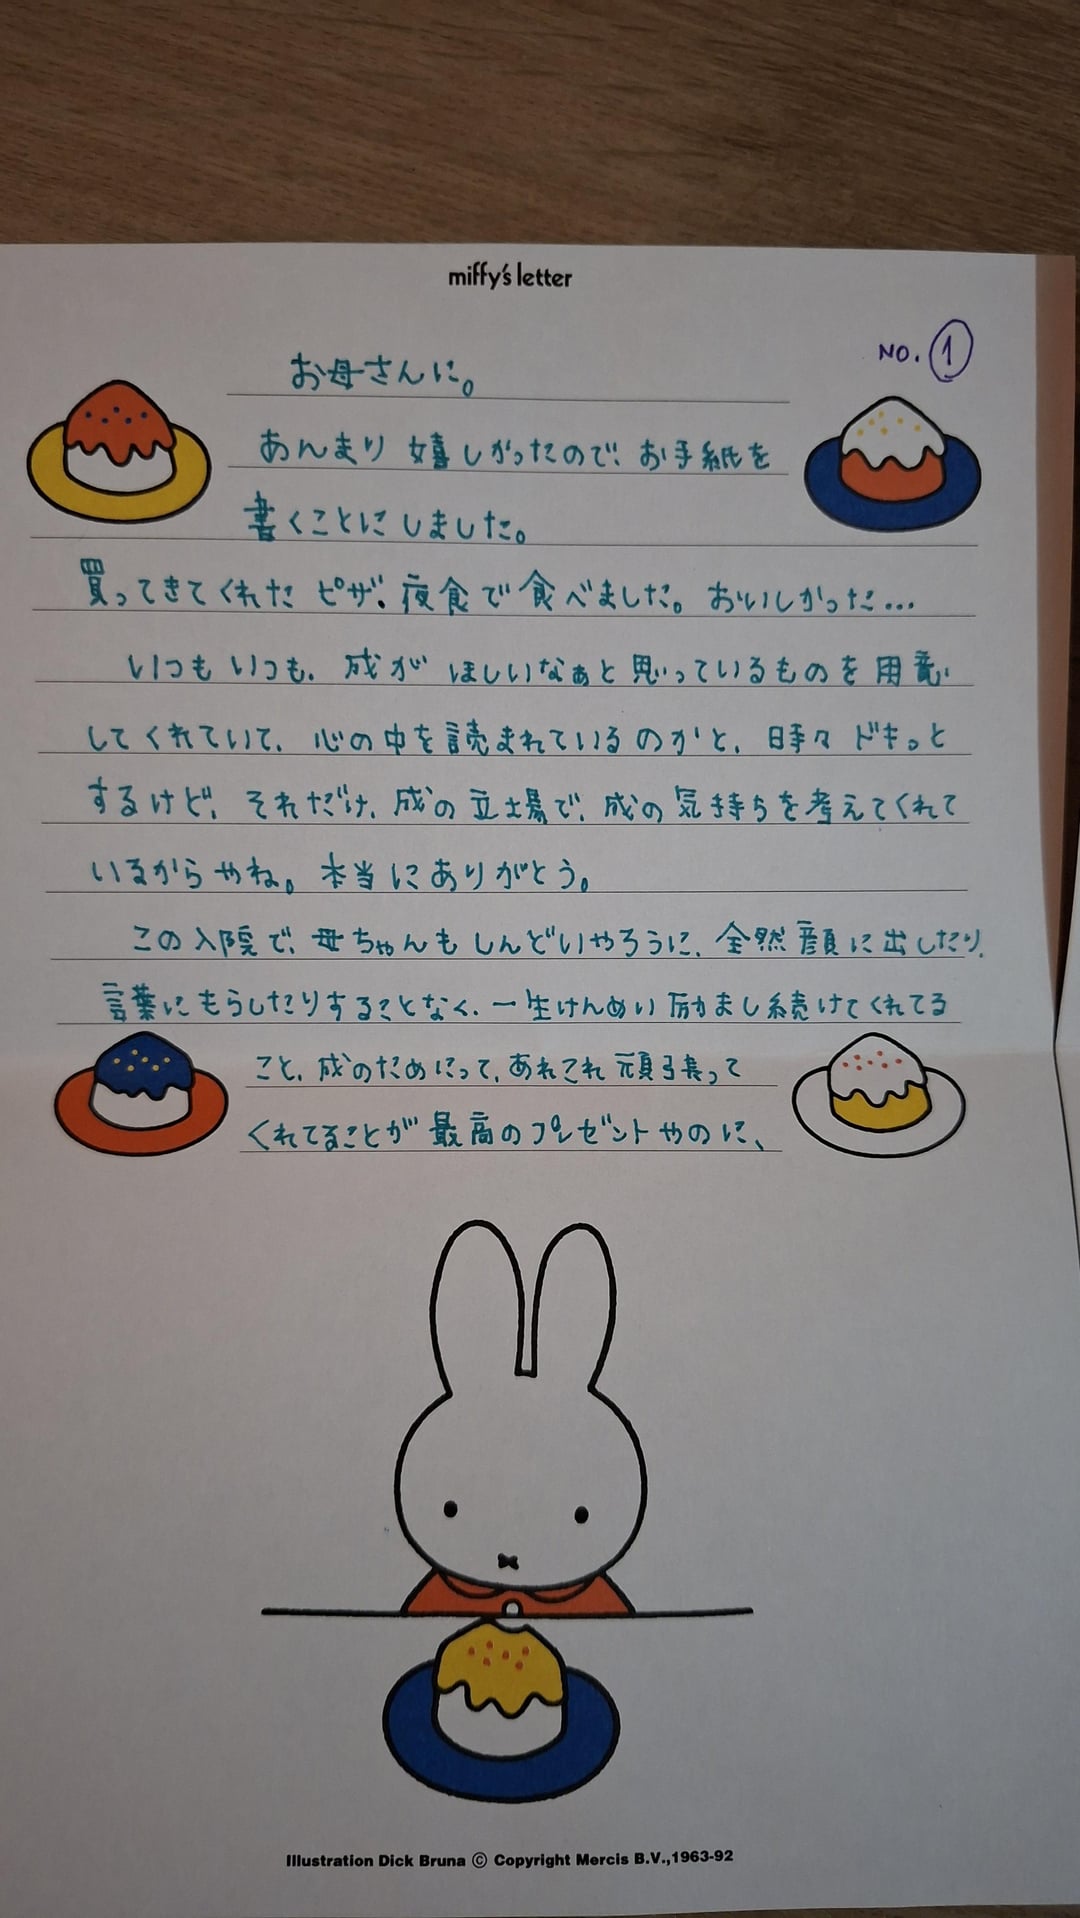 miffy's letter
NO. ①
お母さんに。
あんまり 嬉しかったので、お手紙を
書くことにしました。
買ってきてくれた ピザ、夜食で食べました。おいしかった…
いつもいつも、成が ほしいなぁと思っているものを用意
してくれていて、心の中を読まれているのかと、時々ドキっと
するけど、それだけ、成の立場で、成の気持ちを考えてくれて
いるからやね。本当にありがとう。
この入院で、母ちゃんもしんどいやろうに、全然顔に出したり、
言葉にもらしたりすることなく、一生けんめい励まし続けてくれてる
こと、成のためにって、あれこれ頑張って
くれてることが最高のプレゼントやのに、
Illustration Dick Bruna © Copyright Mercis B.V.,1963-92